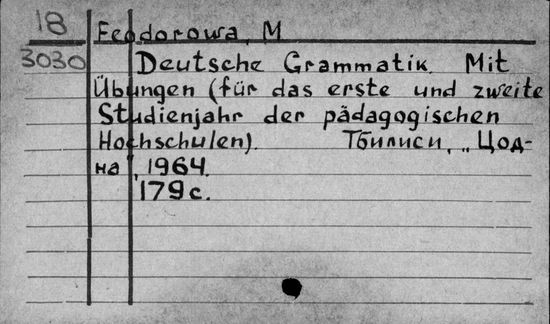 18 Feodorowa, M
3030 Deutsche Grammatik. Mit
Übungen (für das erste und zweite
Studienjahr der pädagogischen
Hochschulen). Тбилиси, „Цод-
на", 1964.
179 с.